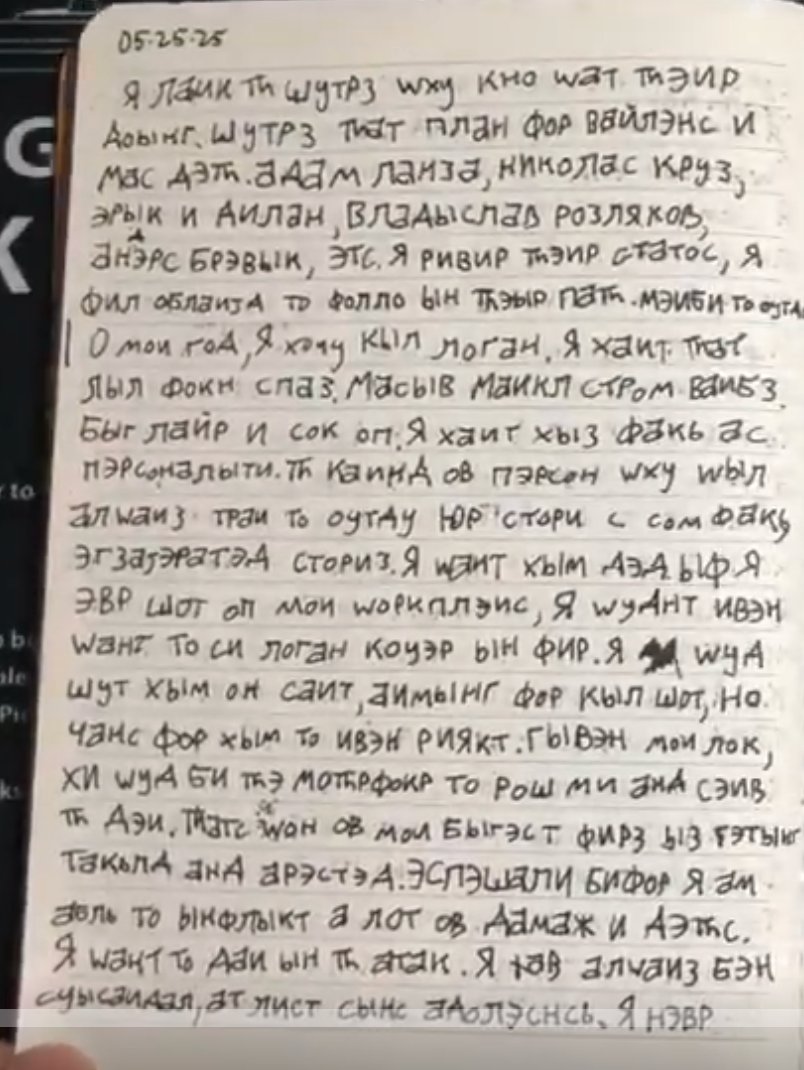 05·25·25
Я лаик тһ шутрз wху кно wат тһэир
доынг. шутрз тһат план фор вайлэнс и
мас дэтһ. адам ланза, николас круз,
эрык и дилан, владыслав розляков,
андэрс брэвык, этс. Я ривир тһэир статос, я
фил облаиjд то фолло ын тһэыр патһ. мэиби то оутд
О мои год, Я хочу кыл логан. Я хаит тһат
лыл фокн спаз. масыв маикл стром ваибз.
Быг лайр и сок оп. Я хаит хыз факь ас
пэрсоналыти. тһ каинд ов пэрсон wху wыл
алwаиз траи то оутду юр стори с сом факь
эгзаjэратэд сториз. Я wаит хым дэд ыф я
эвр шот оп мои wоркплэис, я wудит ивэн
wант то си логан коуэр ын фир. Я wуд
шут хым он саит, аимынг фор кыл шот, но
чанс фор хым то ивэн риякт. Гывэн мои лок,
хи wуд би тһэ мотһрфокр то рош ми анд сэив
тһ дэи. тһатс wон ов мои быгэст фирз ыз гэтынг
такьлд анд арэстэд. эспэшали бифор я ам
абль то ынфлыкт а лот ов дамаж и дэтһс.
Я wант то даи ын тһ атак. Я хав алwаиз бэн
суысаидал, ат лист сынс адолэснсь. Я нэвр
G
to